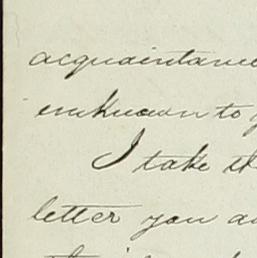 acquaintance
unknown to
I take th
letter you a